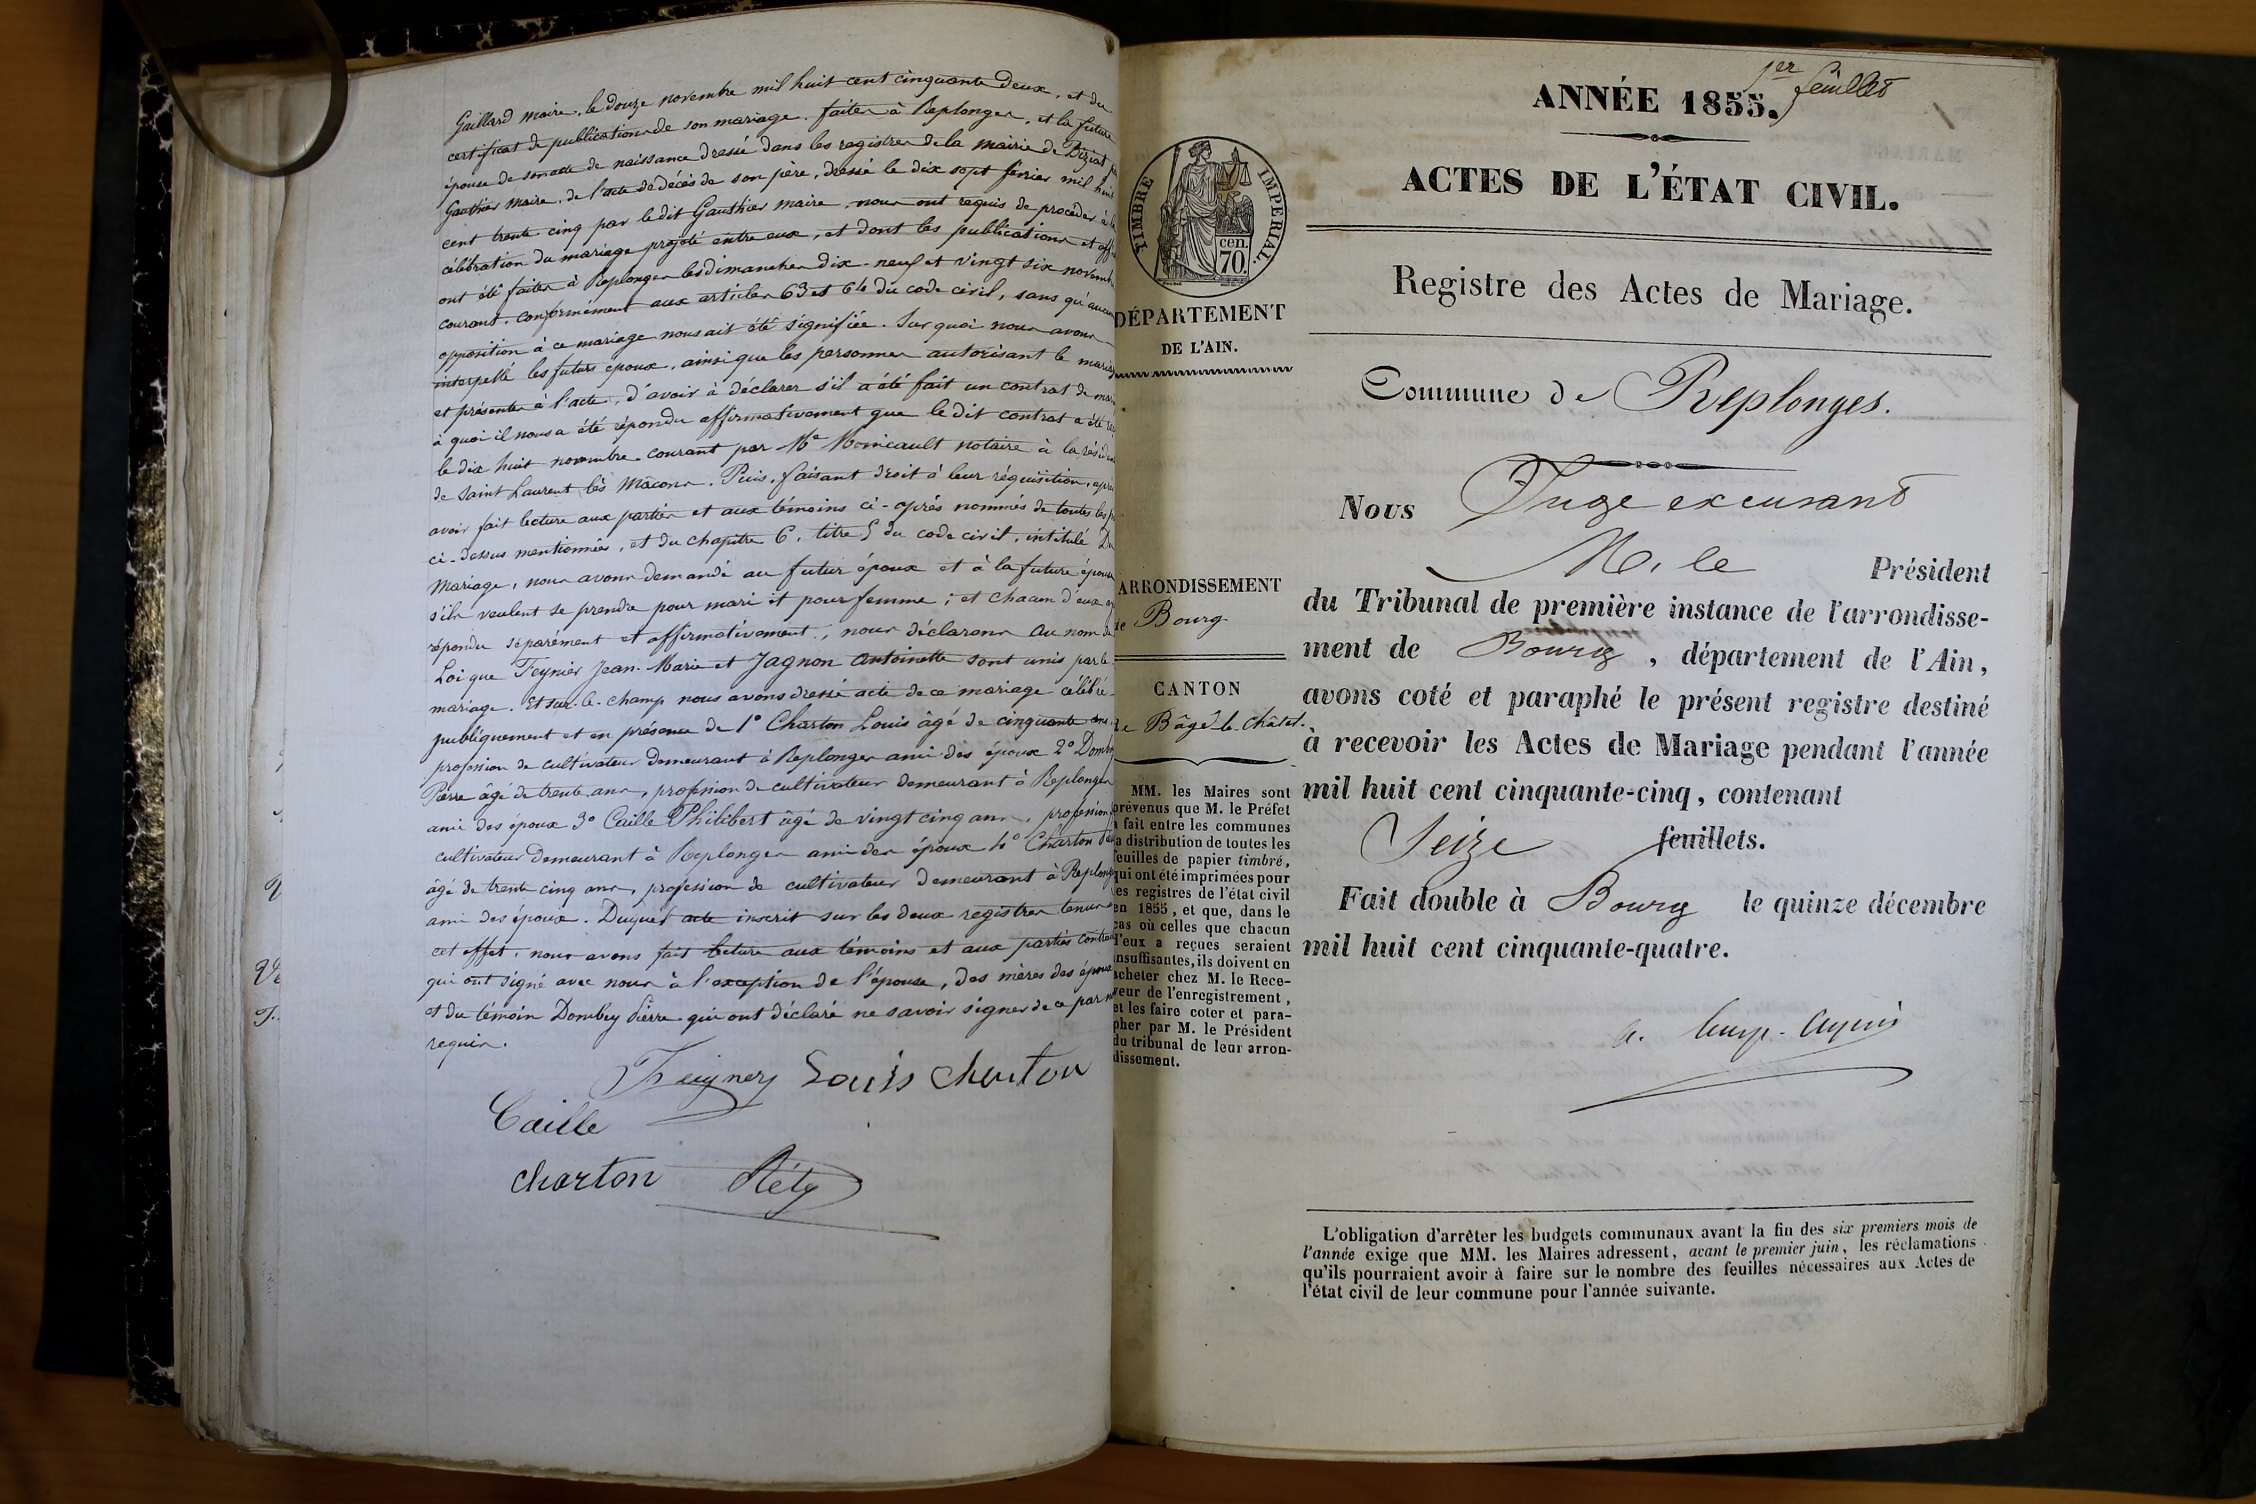 Gaillard maire, le douze novembre mil huit cent cinquante deux, et du
certificat de publications de son mariage faites à Replonges, et la future
épouse de son acte de naissance dressé dans les registres de la mairie de Biziat
Gauthier maire, de l'acte de décès de son père, dressé le dix sept février mil huit
cent trente cinq par le dit Gauthier maire, nous ont requis de procéder à la
célébration du mariage projeté entre eux, et dont les publications et
ont été faites à Replonges les dimanches dix-neuf et vingt six novembre
courant, conformément aux articles 63 et 64 du code civil, sans qu'aucune
opposition à ce mariage nous ait été signifiée. Sur quoi nous avons
interpellé les futurs époux, ainsi que les personnes autorisant le mariage
et présentes à l'acte, d'avoir à déclarer s'il a été fait un contrat de
à quoi il nous a été répondu affirmativement que le dit contrat a été
le dix huit novembre courant par Me Monicault notaire à la
de Saint Laurent lès Mâcon. Puis, faisant droit à leur réquisition, après
avoir fait lecture aux parties et aux témoins ci-après nommés de toutes les
ci-dessus mentionnées, et du chapitre 6, titre 5 du code civil, intitulé Du
Mariage, nous avons demandé au futur époux et à la future épouse
s'ils veulent se prendre pour mari et pour femme; et chacun d'eux
répondu séparément et affirmativement, nous déclarons au nom de
Loi que Feynier Jean-Marie et Jagnon Antoinette sont unis par le
mariage. Et sur-le-champ nous avons dressé acte de ce mariage célébré
publiquement et en présence de 1° Charton Louis âgé de cinquante ans,
profession de cultivateur demeurant à Replonges ami des époux 2° Dombey
Pierre âgé de trente ans, profession de cultivateur demeurant à Replonges
ami des époux 3° Caille Philibert âgé de vingt cinq ans, profession
cultivateur demeurant à Replonges ami des époux 4° Charton
âgé de trente cinq ans, profession de cultivateur demeurant à Replonges
ami des époux. Duquel acte inscrit sur les deux registres tenus
cet effet, nous avons fait lecture aux témoins et aux parties
qui ont signé avec nous à l'exception de l'épouse, des mères des époux
et du témoin Dombey Pierre qui ont déclaré ne savoir signer de ce par
requis.
Feigner Louis Charton
Caille
Charton Réty
1er feuillet
ANNÉE 1855.
ACTES DE L'ÉTAT CIVIL.
Registre des Actes de Mariage.
Commune de Replonges.
TIMBRE IMPERIAL.
70 cen.
DÉPARTEMENT
DE L'AIN.
ARRONDISSEMENT
de Bourg
CANTON
de Bâgé-le-Châtel.
MM. les Maires sont
prévenus que M. le Préfet
a fait entre les communes
la distribution de toutes les
feuilles de papier timbré,
qui ont été imprimées pour
les registres de l'état civil
en 1855, et que, dans le
cas où celles que chacun
d'eux a reçues seraient
insuffisantes, ils doivent en
acheter chez M. le Rece-
veur de l'enregistrement,
et les faire coter et para-
pher par M. le Président
du tribunal de leur arron-
dissement.
Nous Juge excusant
M. le Président
du Tribunal de première instance de l'arrondisse-
ment de Bourg, département de l'Ain,
avons coté et paraphé le présent registre destiné
à recevoir les Actes de Mariage pendant l'année
mil huit cent cinquante-cinq, contenant
Seize feuillets.
Fait double à Bourg le quinze décembre
mil huit cent cinquante-quatre.
L'obligation d'arrêter les budgets communaux avant la fin des six premiers mois de
l'année exige que MM. les Maires adressent, avant le premier juin, les réclamations
qu'ils pourraient avoir à faire sur le nombre des feuilles nécessaires aux Actes de
l'état civil de leur commune pour l'année suivante.